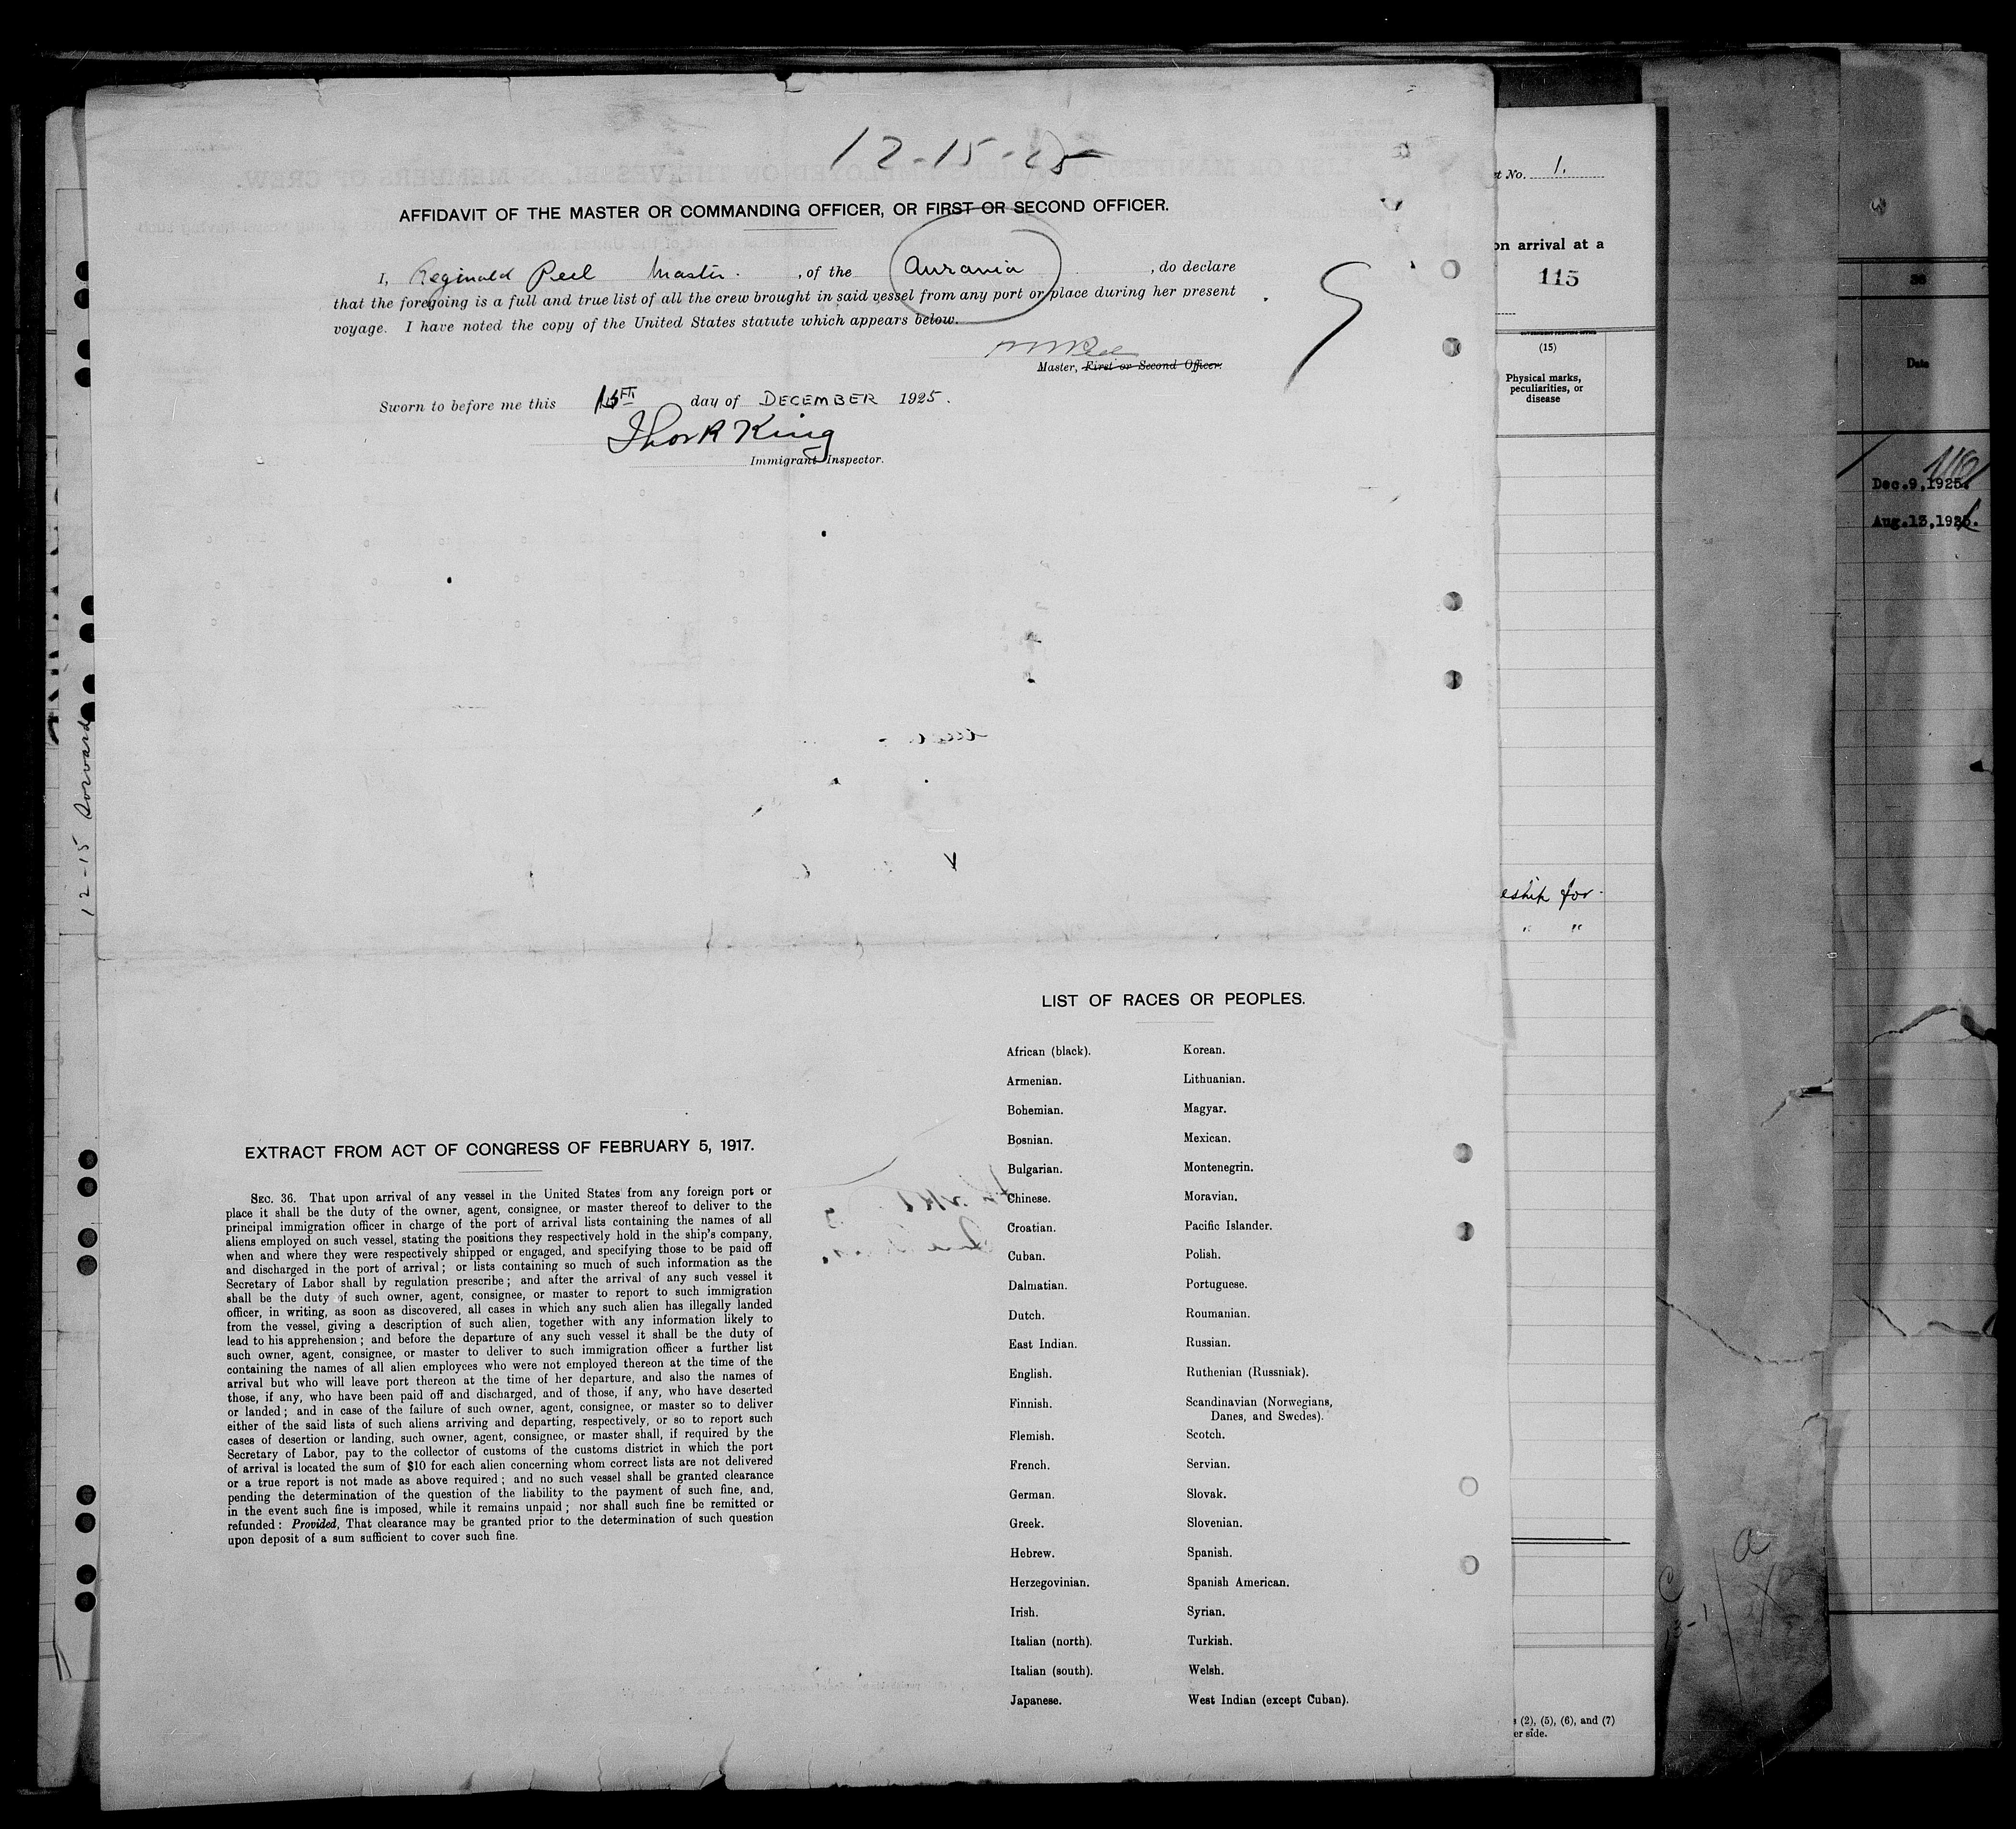 12-15-25
AFFIDAVIT OF THE MASTER OR COMMANDING OFFICER, OR FIRST OR SECOND OFFICER.
I, Reginald Peel Master. , of the Aurania , do declare
that the foregoing is a full and true list of all the crew brought in said vessel from any port or place during her present
voyage. I have noted the copy of the United States statute which appears below.
Master, First or Second Officer.
Sworn to before me this 15TH day of DECEMBER 1925.
Thos R King
Immigrant Inspector.
LIST OF RACES OR PEOPLES.
African (black). Korean.
Armenian. Lithuanian.
Bohemian. Magyar.
Bosnian. Mexican.
Bulgarian. Montenegrin.
Chinese. Moravian.
Croatian. Pacific Islander.
Cuban. Polish.
Dalmatian. Portuguese.
Dutch. Roumanian.
East Indian. Russian.
English. Ruthenian (Russniak).
Finnish. Scandinavian (Norwegians,
Danes, and Swedes).
Flemish. Scotch.
French. Servian.
German. Slovak.
Greek. Slovenian.
Hebrew. Spanish.
Herzegovinian. Spanish American.
Irish. Syrian.
Italian (north). Turkish.
Italian (south). Welsh.
Japanese. West Indian (except Cuban).
EXTRACT FROM ACT OF CONGRESS OF FEBRUARY 5, 1917.
SEC. 36. That upon arrival of any vessel in the United States from any foreign port or
place it shall be the duty of the owner, agent, consignee, or master thereof to deliver to the
principal immigration officer in charge of the port of arrival lists containing the names of all
aliens employed on such vessel, stating the positions they respectively hold in the ship's company,
when and where they were respectively shipped or engaged, and specifying those to be paid off
and discharged in the port of arrival; or lists containing so much of such information as the
Secretary of Labor shall by regulation prescribe; and after the arrival of any such vessel it
shall be the duty of such owner, agent, consignee, or master to report to such immigration
officer, in writing, as soon as discovered, all cases in which any such alien has illegally landed
from the vessel, giving a description of such alien, together with any information likely to
lead to his apprehension; and before the departure of any such vessel it shall be the duty of
such owner, agent, consignee, or master to deliver to such immigration officer a further list
containing the names of all alien employees who were not employed thereon at the time of the
arrival but who will leave port thereon at the time of her departure, and also the names of
those, if any, who have been paid off and discharged, and of those, if any, who have deserted
or landed; and in case of the failure of such owner, agent, consignee, or master so to deliver
either of the said lists of such aliens arriving and departing, respectively, or so to report such
cases of desertion or landing, such owner, agent, consignee, or master shall, if required by the
Secretary of Labor, pay to the collector of customs of the customs district in which the port
of arrival is located the sum of $10 for each alien concerning whom correct lists are not delivered
or a true report is not made as above required; and no such vessel shall be granted clearance
pending the determination of the question of the liability to the payment of such fine, and,
in the event such fine is imposed, while it remains unpaid; nor shall such fine be remitted or
refunded: Provided, That clearance may be granted prior to the determination of such question
upon deposit of a sum sufficient to cover such fine.
12-15
No. 1.
on arrival at a
115
(15)
Physical marks,
peculiarities, or
disease
for
(2), (5), (6), and (7)
er side.
Date
Dec.9,1925.
Aug.13,192